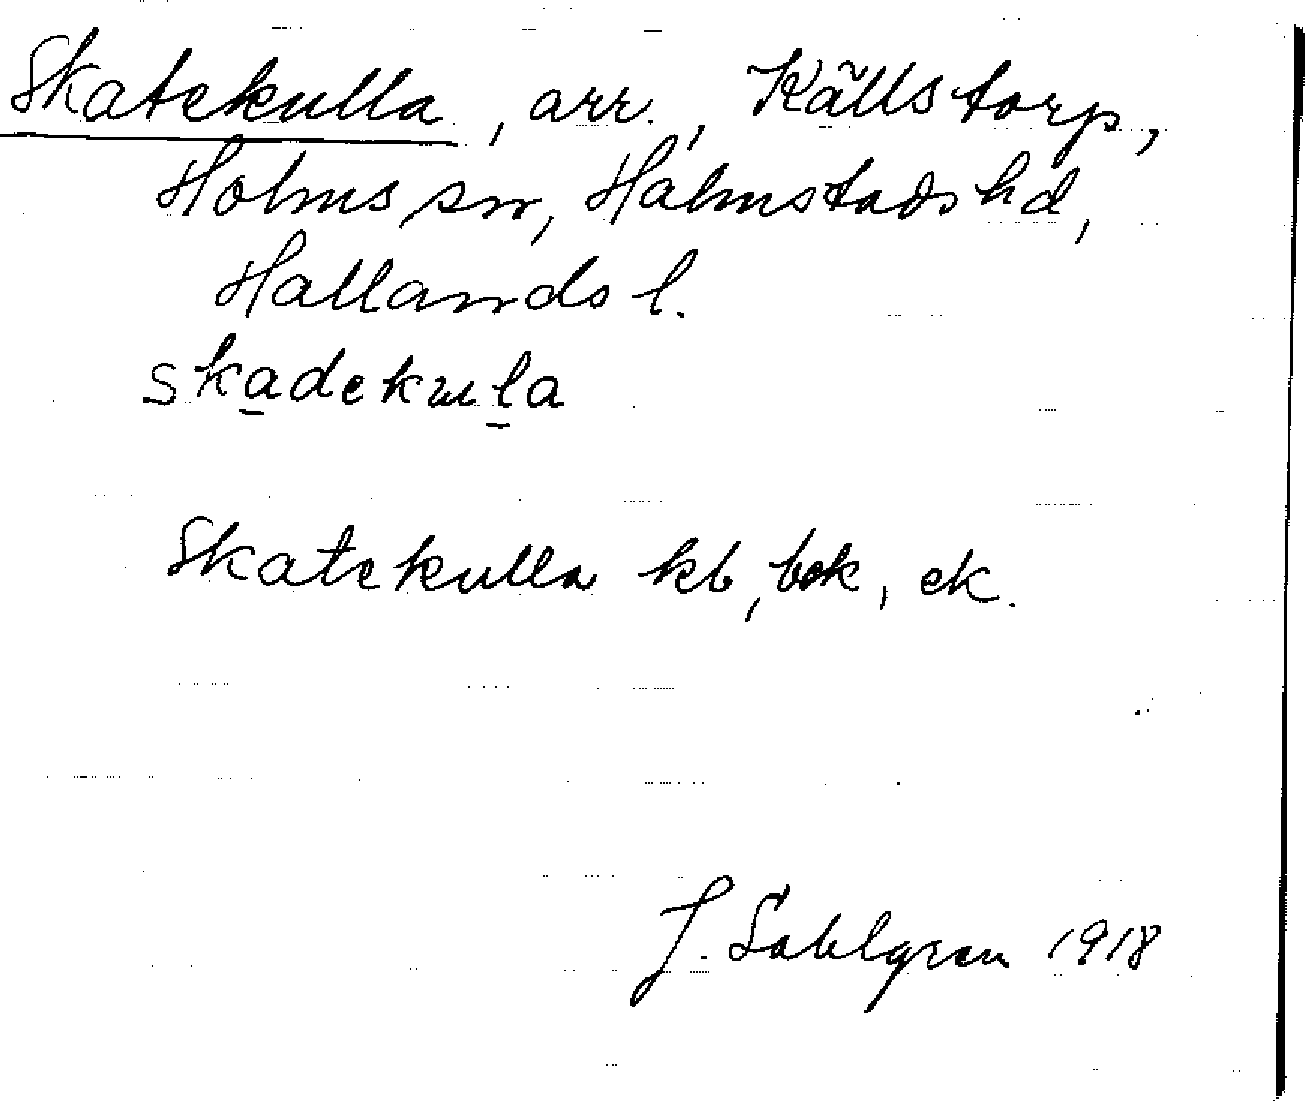 Skatekulla, arr., Källstorp,
Holms sn, Halmstads hd,
Hallands l.
skadekula
Skatekulla kb, bok, ek.
J. Sahlgren 1918